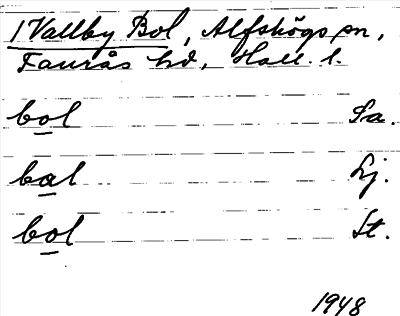 1 Vallby Bol, Alfshögs sn,
Faurås hd, Hall. l.
bol Sa.
bal Lj.
bol St.
1948